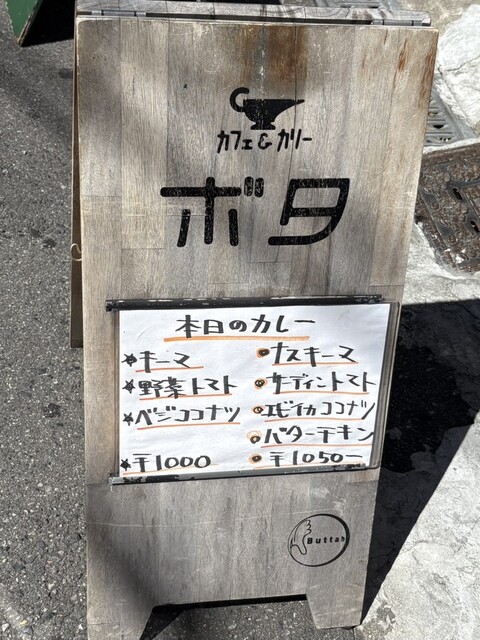 カフェ&カリー
ボタ
本日のカレー
★キーマ
★野菜トマト
★ベジココナツ
★￥1000
●ナスキーマ
●サーディントマト
●エビイカココナツ
●バターチキン
●￥1050ー
Buttah